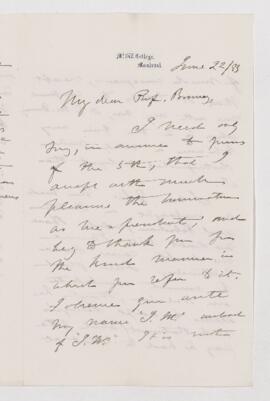 McGill College,
Montreal
June 22/83
My dear Prof. Bonney,
I need only
say, in answer to yours
of the 5th, that I
accept with much
pleasure the nomination
as Vice-president, and
beg to thank you for
the kind manner in
which you refer to it.
I observe you write
my name "J. M." instead
of "J. W." It is not a